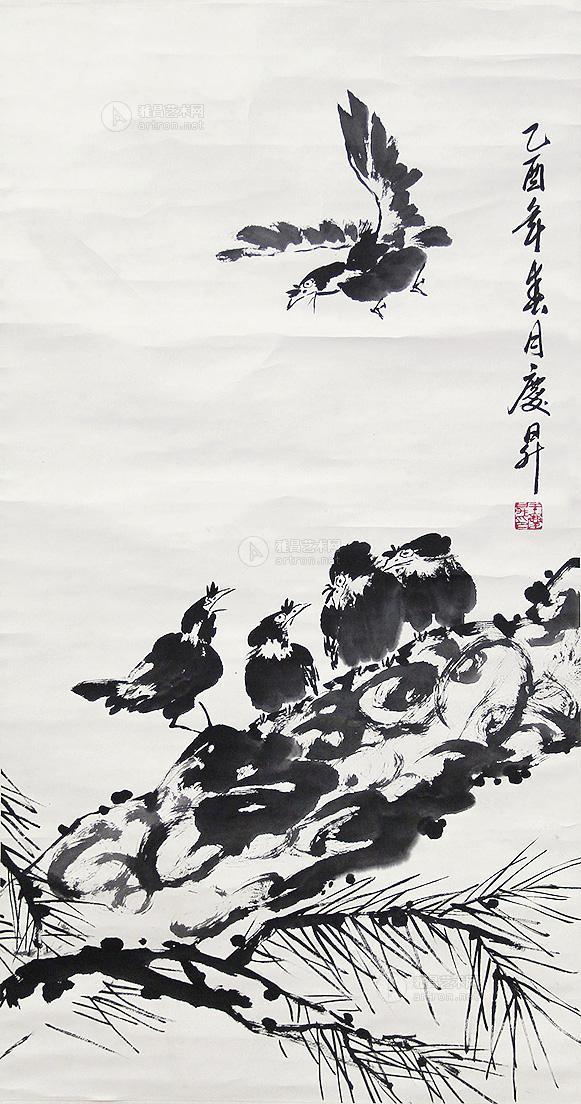 乙酉年春月慶昇
雅昌艺术网
artron.net
雅昌艺术网
artron.net
雅昌艺术网
artron.net